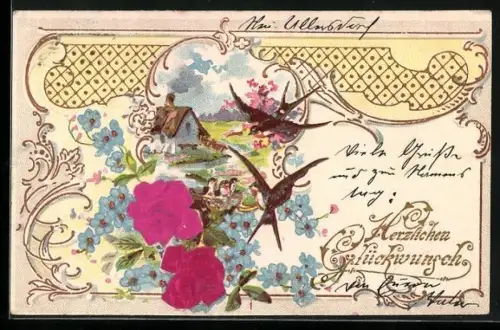 Neu-Ullersdorf
Viele Grüße
und zum Namens
tag!
Herzlichen
Glückwunsch
von Eurer